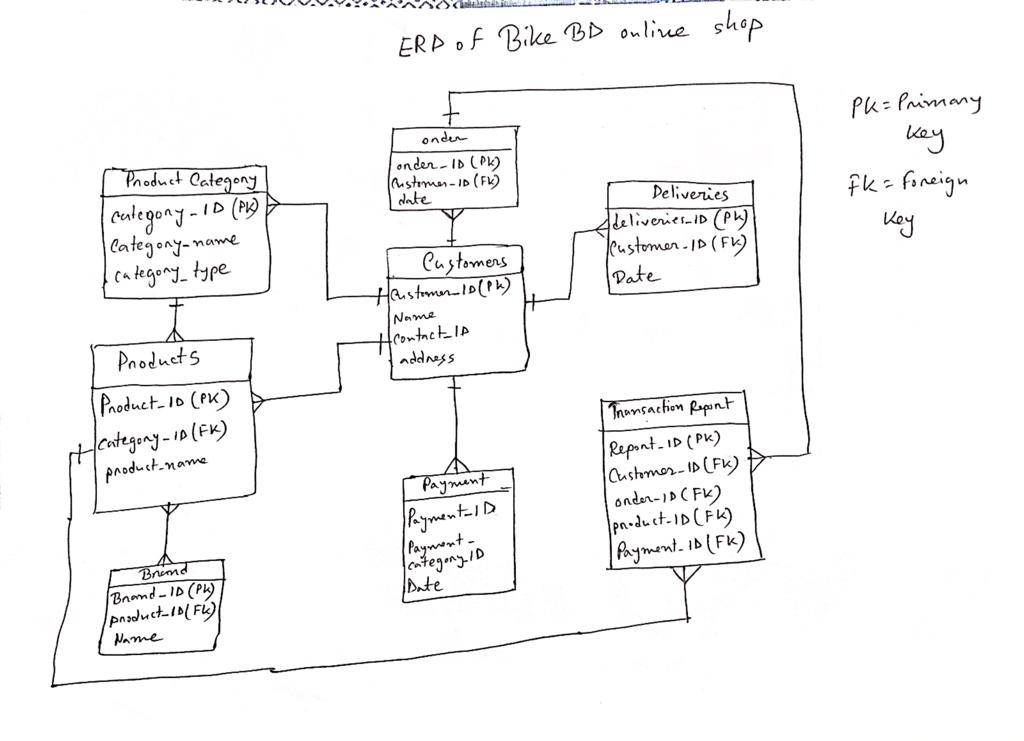 ERD of Bike BD online shop
PK = Primary
Key
FK = Foreign
Key
order
order_ID (PK)
Customer_ID (FK)
date
Product Category
category_ID (PK)
Category_name
category_type
Deliveries
deliveries_ID (PK)
Customer_ID (FK)
Date
Customers
Customer_ID (PK)
Name
Contact_ID
address
Products
Product_ID (PK)
Category_ID (FK)
product_name
Transaction Report
Report_ID (PK)
Customer_ID (FK)
order_ID (FK)
product_ID (FK)
Payment_ID (FK)
Payment
Payment_ID
Payment_
category_ID
Date
Brand
Brand_ID (PK)
product_ID (FK)
Name